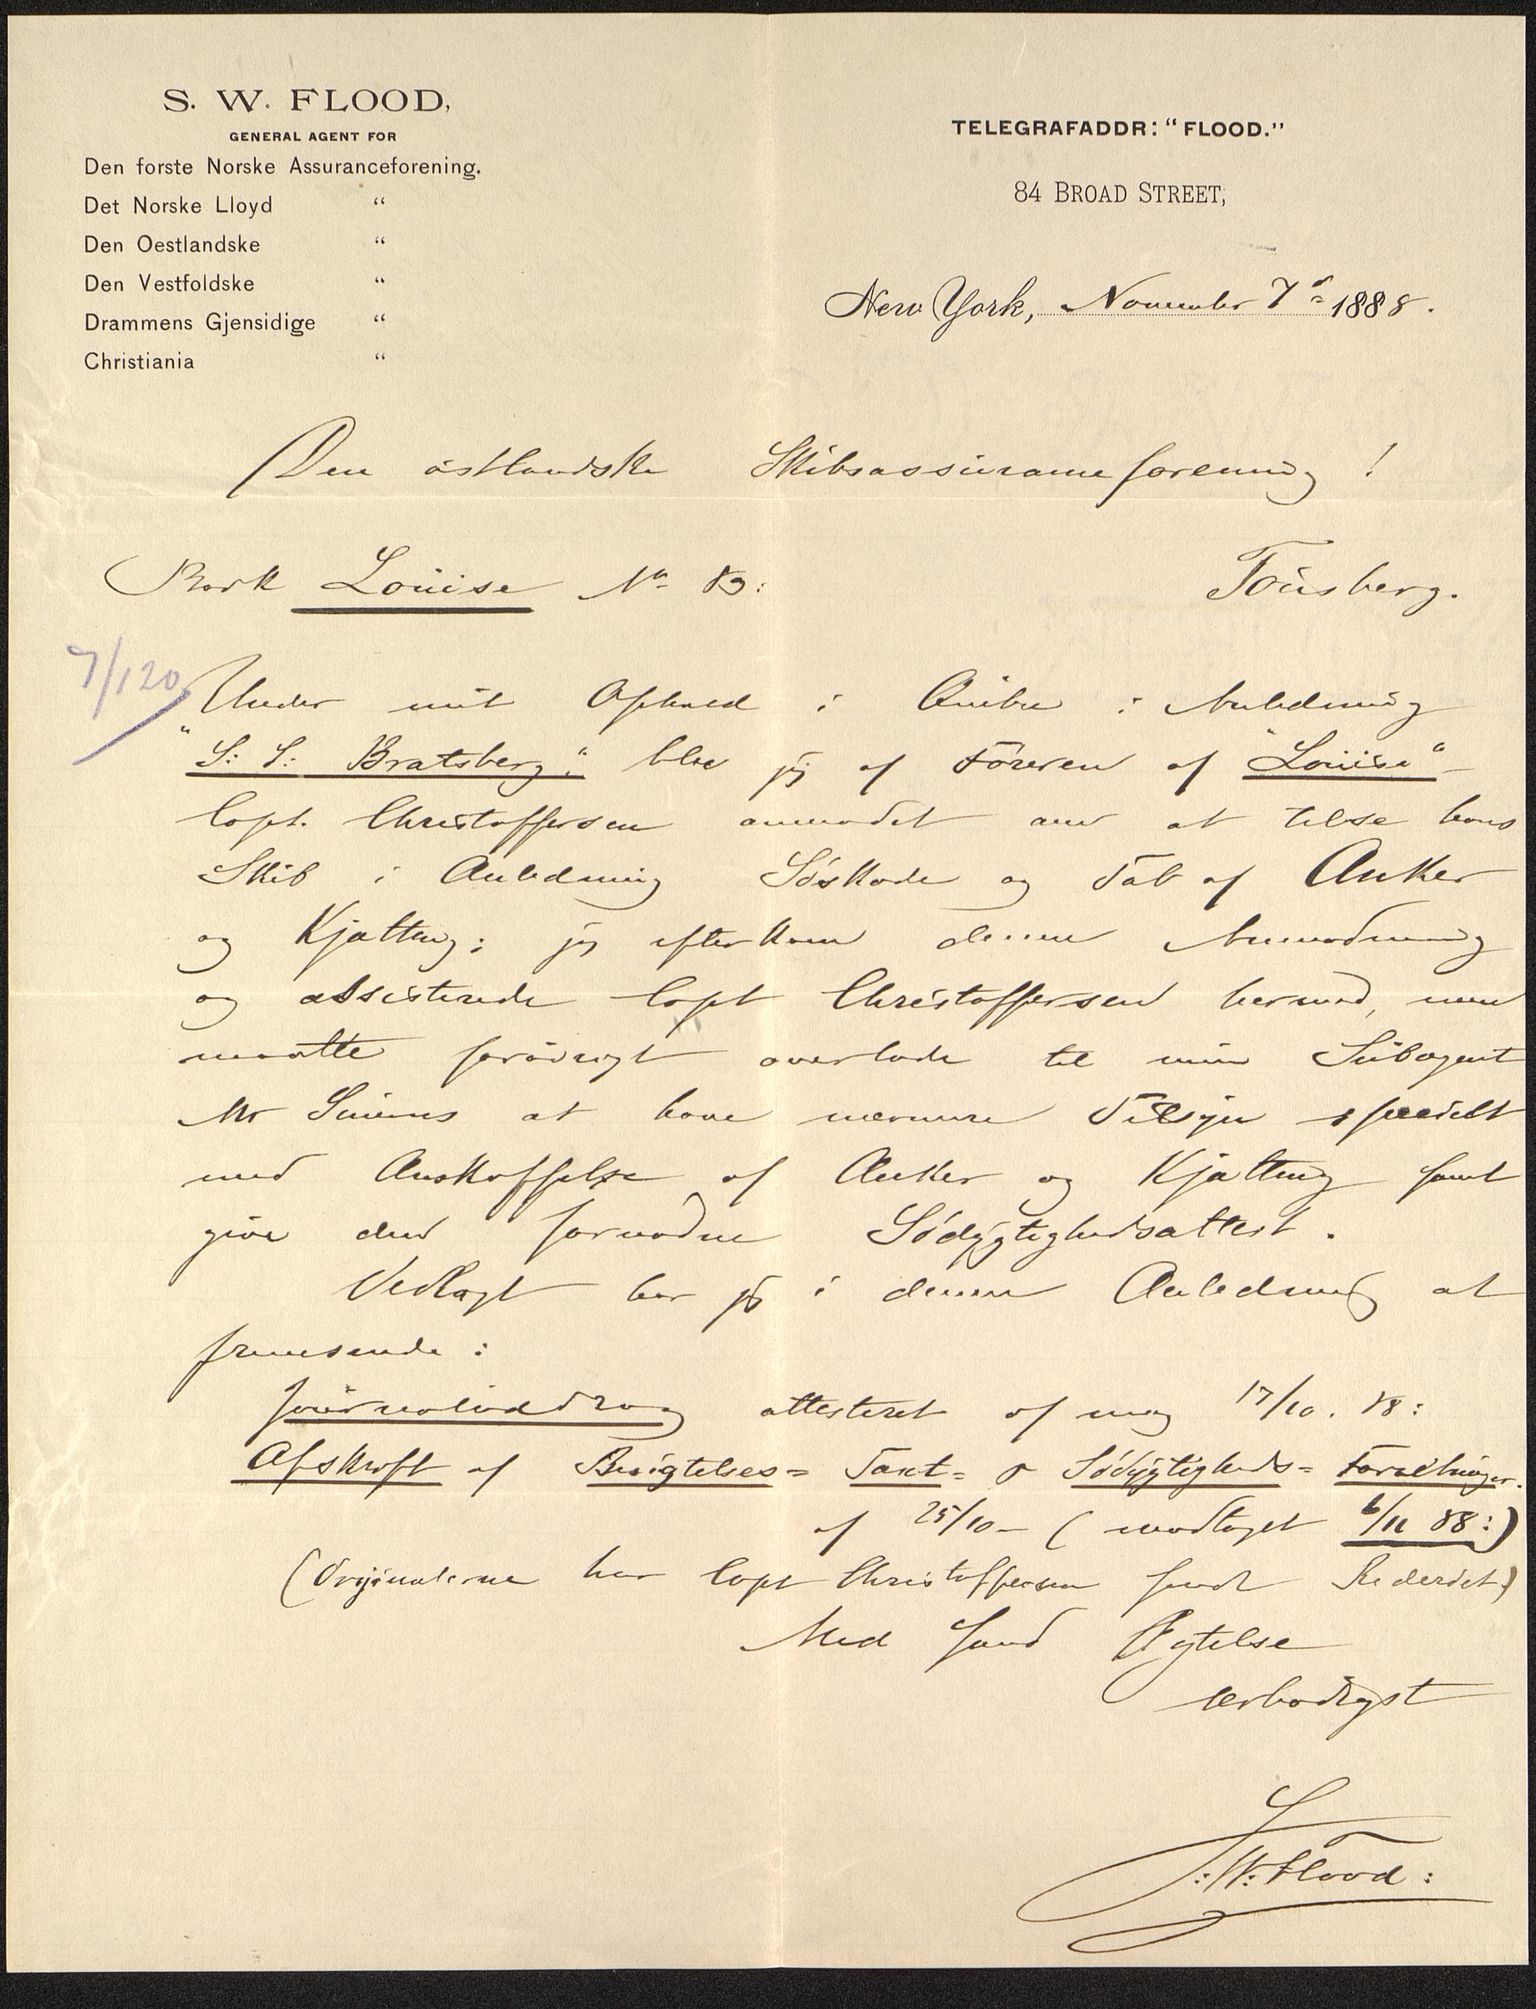 S. W. FLOOD,
GENERAL AGENT FOR
Den forste Norske Assuranceforening.
Det Norske Lloyd "
Den Oestlandske "
Den Vestfoldske "
Drammens Gjensidige "
Christiania "
TELEGRAFADDR: "FLOOD."
84 BROAD STREET,
New York, November 7d 1888.
Den östlandske Skibsassuranceforening!
Bark Louise No 83:
Tönsberg.
7/120
Under mit Ophold i i Anledning
"S: S: Bratsberg" blev jeg af Föreren af "Louise"
Capt. Christoffersen anmodet om at tilse hans
Skib i Anledning Söskade og Tab af Anker
og Kjætting; jeg efterkom denne Anmodning
og assisterede Capt Christoffersen hermed, men
maatte forövrigt overlade til min Subagent
Mr at have nærmere Tilsyn specielt
med Anskaffelse af Anker og Kjætting samt
give den fornödne Södygtighedsattest.
Vedlagt har jeg i denne Anledning at
fremsende:
Journaluddrag attesteret af mig 17/10. 88:
Afskrift af Besigtelses= Taxt= & Södygtigheds= Forretninger.
af 25/10 - (modtaget 6/11 88:)
(Originalerne har Capt Christoffersen sendt Rederiet)
Med sand Agtelse
ærbödigst
S:W:Flood: